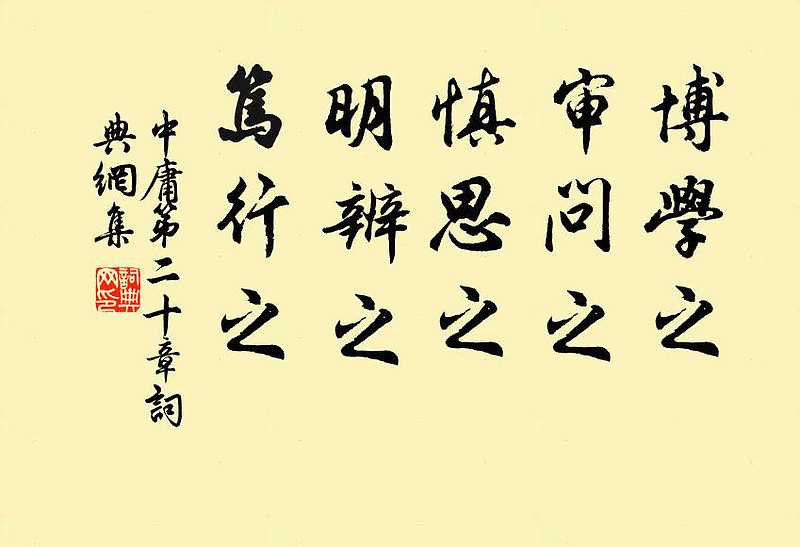 博學之
审问之
慎思之
明辨之
篤行之
中庸第二十章詞
典網集
詞典网印